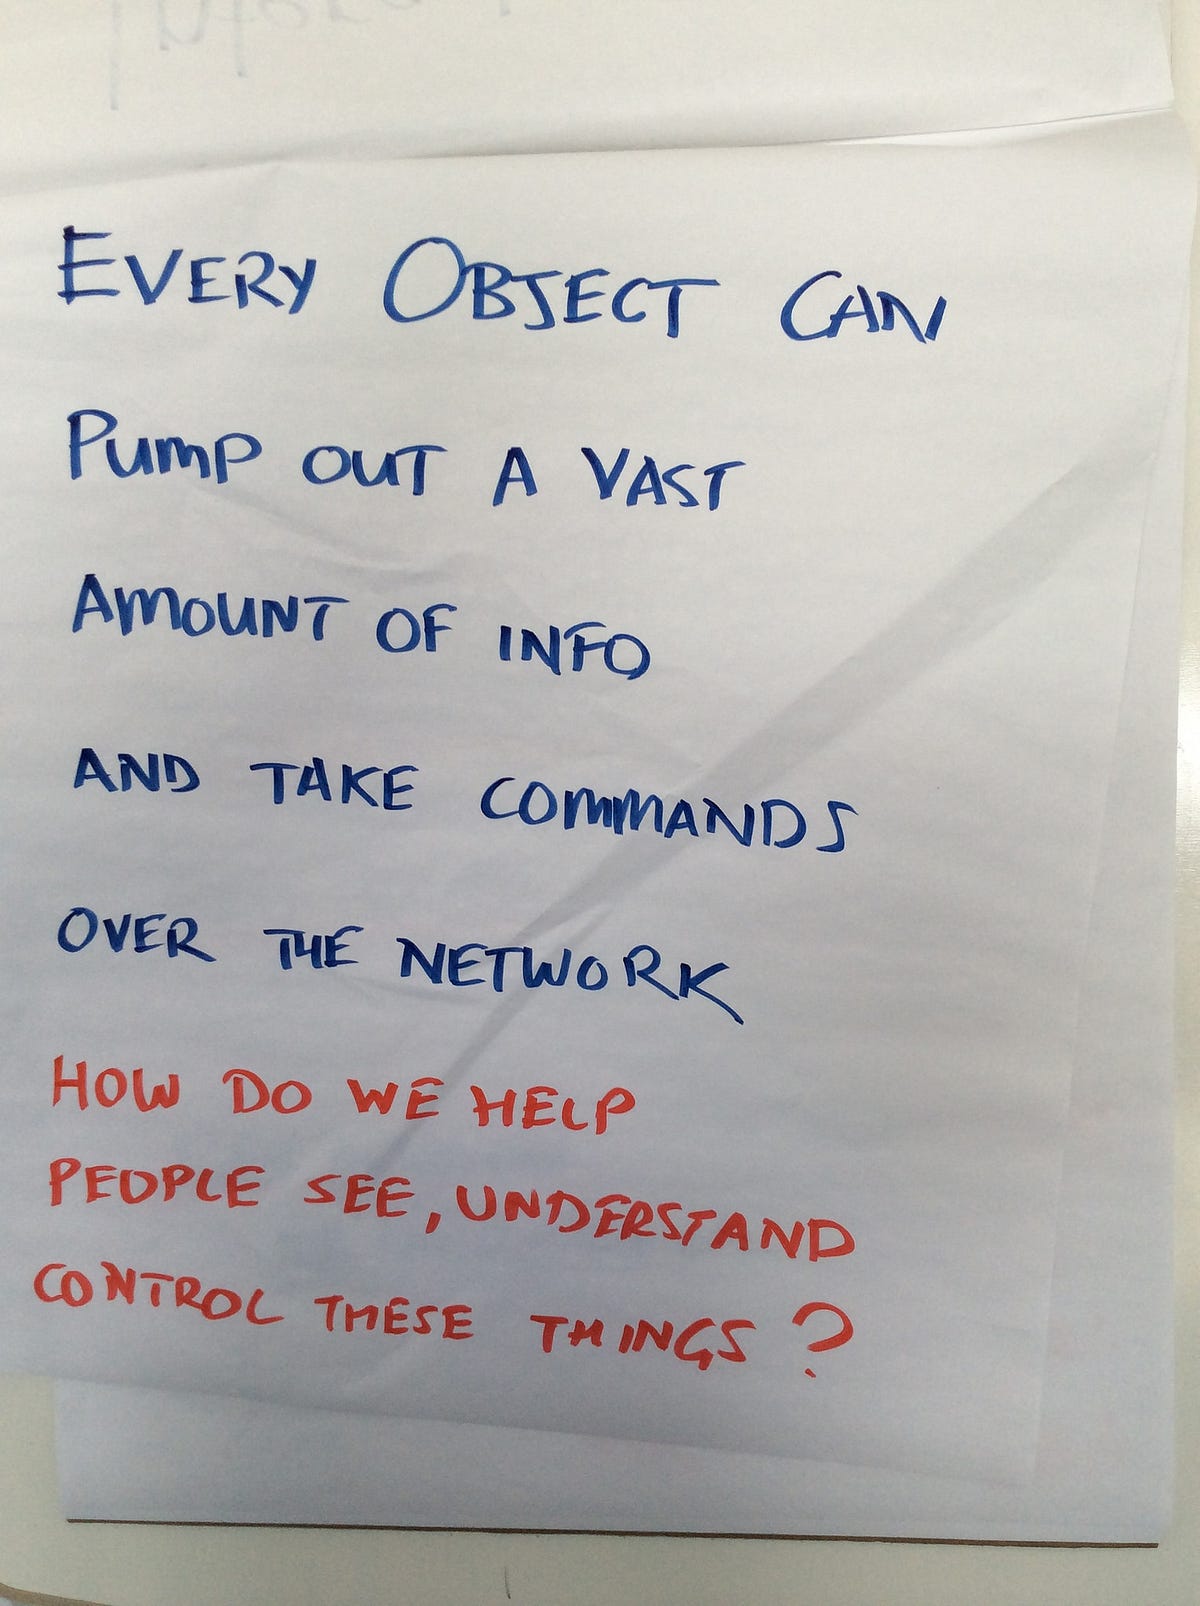 EVERY OBJECT CAN
PUMP OUT A VAST
AMOUNT OF INFO
AND TAKE COMMANDS
OVER THE NETWORK
HOW DO WE HELP
PEOPLE SEE, UNDERSTAND
CONTROL THESE THINGS?